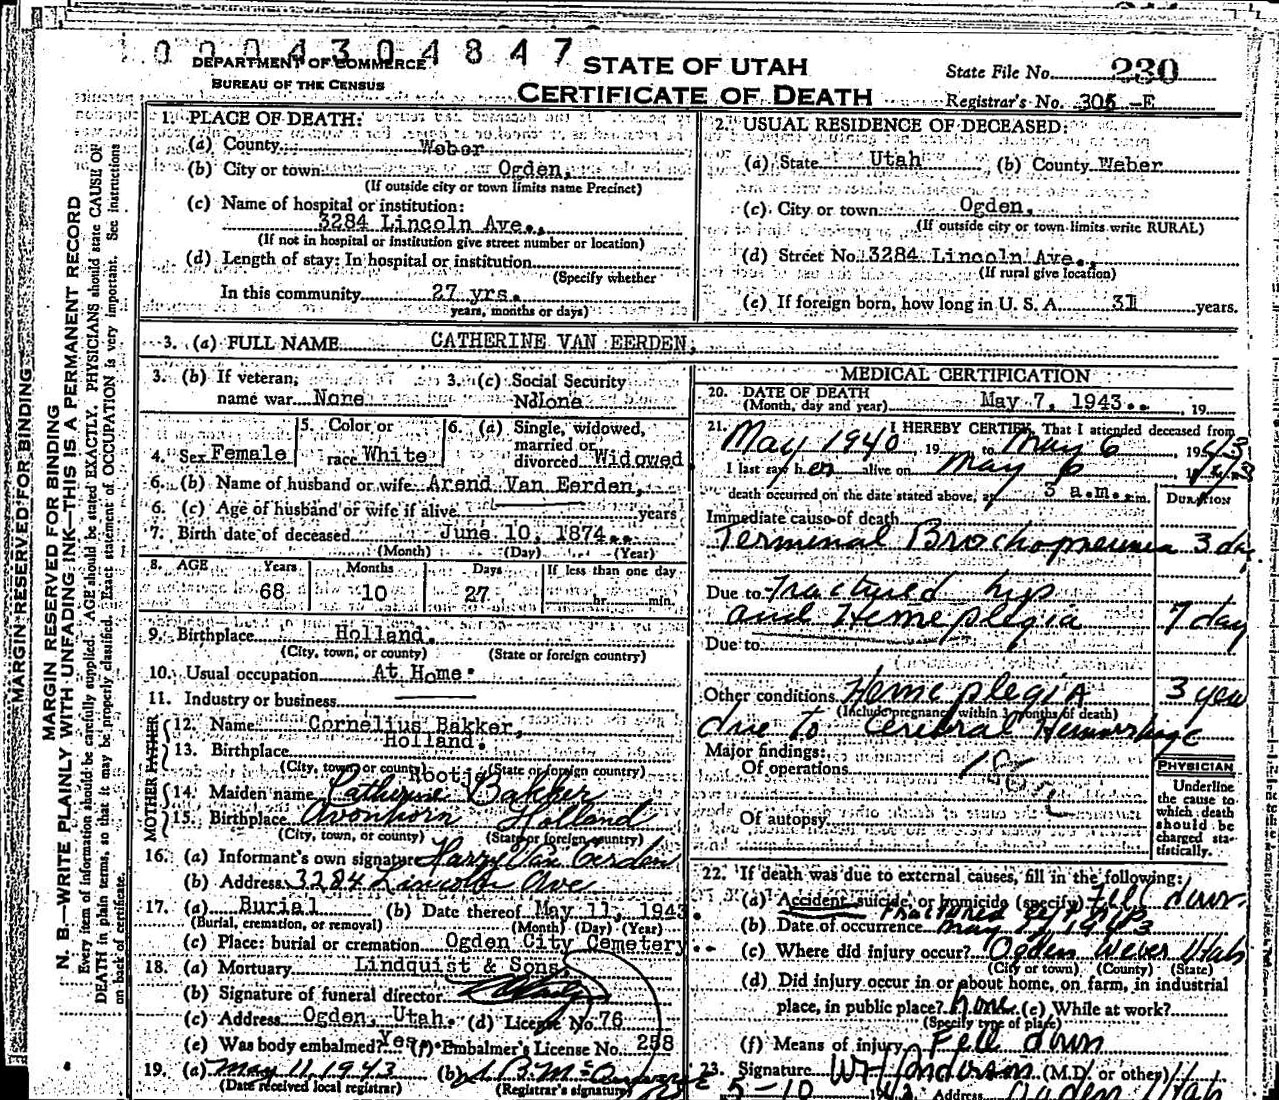 0004304847
DEPARTMENT OF COMMERCE
BUREAU OF THE CENSUS
STATE OF UTAH
CERTIFICATE OF DEATH
State File No. 230
Registrar's No. 305 -E
MARGIN RESERVED FOR BINDING
MARGIN RESERVED FOR BINDING
N. B.—WRITE PLAINLY WITH UNFADING INK—THIS IS A PERMANENT RECORD
Every item of information should be carefully supplied. AGE should be stated EXACTLY. PHYSICIANS should state CAUSE OF
DEATH in plain terms, so that it may be properly classified. Exact statement of OCCUPATION is very important. See instructions
on back of certificate.
1. PLACE OF DEATH:
(a) County Weber
(b) City or town Ogden,
(If outside city or town limits name Precinct)
(c) Name of hospital or institution:
3284 Lincoln Ave.,
(If not in hospital or institution give street number or location)
(d) Length of stay: In hospital or institution
(Specify whether
In this community 27 yrs.
years, months or days)
2. USUAL RESIDENCE OF DECEASED:
(a) State Utah, (b) County Weber
(c) City or town Ogden,
(If outside city or town limits write RURAL)
(d) Street No. 3284 Lincoln Ave.,
(If rural give location)
(e) If foreign born, how long in U. S. A. 31 years.
3. (a) FULL NAME CATHERINE VAN EERDEN,
3. (b) If veteran, name war None
3. (c) Social Security No. None
4. Sex Female
5. Color or race White
6. (a) Single, widowed, married or divorced Widowed
6. (b) Name of husband or wife Arend Van Eerden,
6. (c) Age of husband or wife if alive years
7. Birth date of deceased June 10, 1874..
(Month) (Day) (Year)
8. AGE Years Months Days If less than one day
68 10 27 hr. min.
9. Birthplace Holland.
(City, town, or county) (State or foreign country)
10. Usual occupation At Home.
11. Industry or business
FATHER
12. Name Cornelius Bakker,
13. Birthplace Holland.
(City, town or county) (State or foreign country)
MOTHER
Rootje
14. Maiden name Catherine Bakker
15. Birthplace Avonhorn Holland
(City, town, or county) (State or foreign country)
16. (a) Informant's own signature Harry Van Eerden
(b) Address 3284 Lincoln Ave
17. (a) Burial (b) Date thereof May 11, 1943.
(Burial, cremation, or removal) (Month) (Day) (Year)
(c) Place: burial or cremation Ogden City Cemetery..
18. (a) Mortuary Lindquist & Sons,
(b) Signature of funeral director
(c) Address Ogden, Utah. (d) License No. 76
(e) Was body embalmed? Yes. (f) Embalmer's License No. 258
19. (a) May 11, 1943 (b)
(Date received local registrar) (Registrar's signature)
MEDICAL CERTIFICATION
20. DATE OF DEATH
(Month, day and year) May 7, 1943.. , 19
21. I HEREBY CERTIFY, That I attended deceased from
May 1940, 19 to May 6, 1943
I last saw her alive on May 6 1943
death occurred on the date stated above, at 3 a.m. m.
DURATION
Immediate cause of death
Terminal Brochopneumia 3 day
Due to Fractured hip
and Hemeplegia 7 day
Due to
Other conditions Hemeplegia 3 year
(Include pregnancy within 3 months of death)
due to Cerebral Hemorrhage
Major findings:
Of operations
Of autopsy
PHYSICIAN
Underline
the cause to
which death
should be
charged sta-
tistically.
22. If death was due to external causes, fill in the following:
(a) Accident, suicide, or homicide (specify) Fell down
Fractured left hip
(b) Date of occurrence May 1, 1943
(c) Where did injury occur? Ogden Weber Utah
(City or town) (County) (State)
(d) Did injury occur in or about home, on farm, in industrial
place, in public place? home (e) While at work?
(Specify type of place)
(f) Means of injury Fell down
23. Signature W H Anderson (M.D. or other)
5-10 1943 Address Ogden Utah